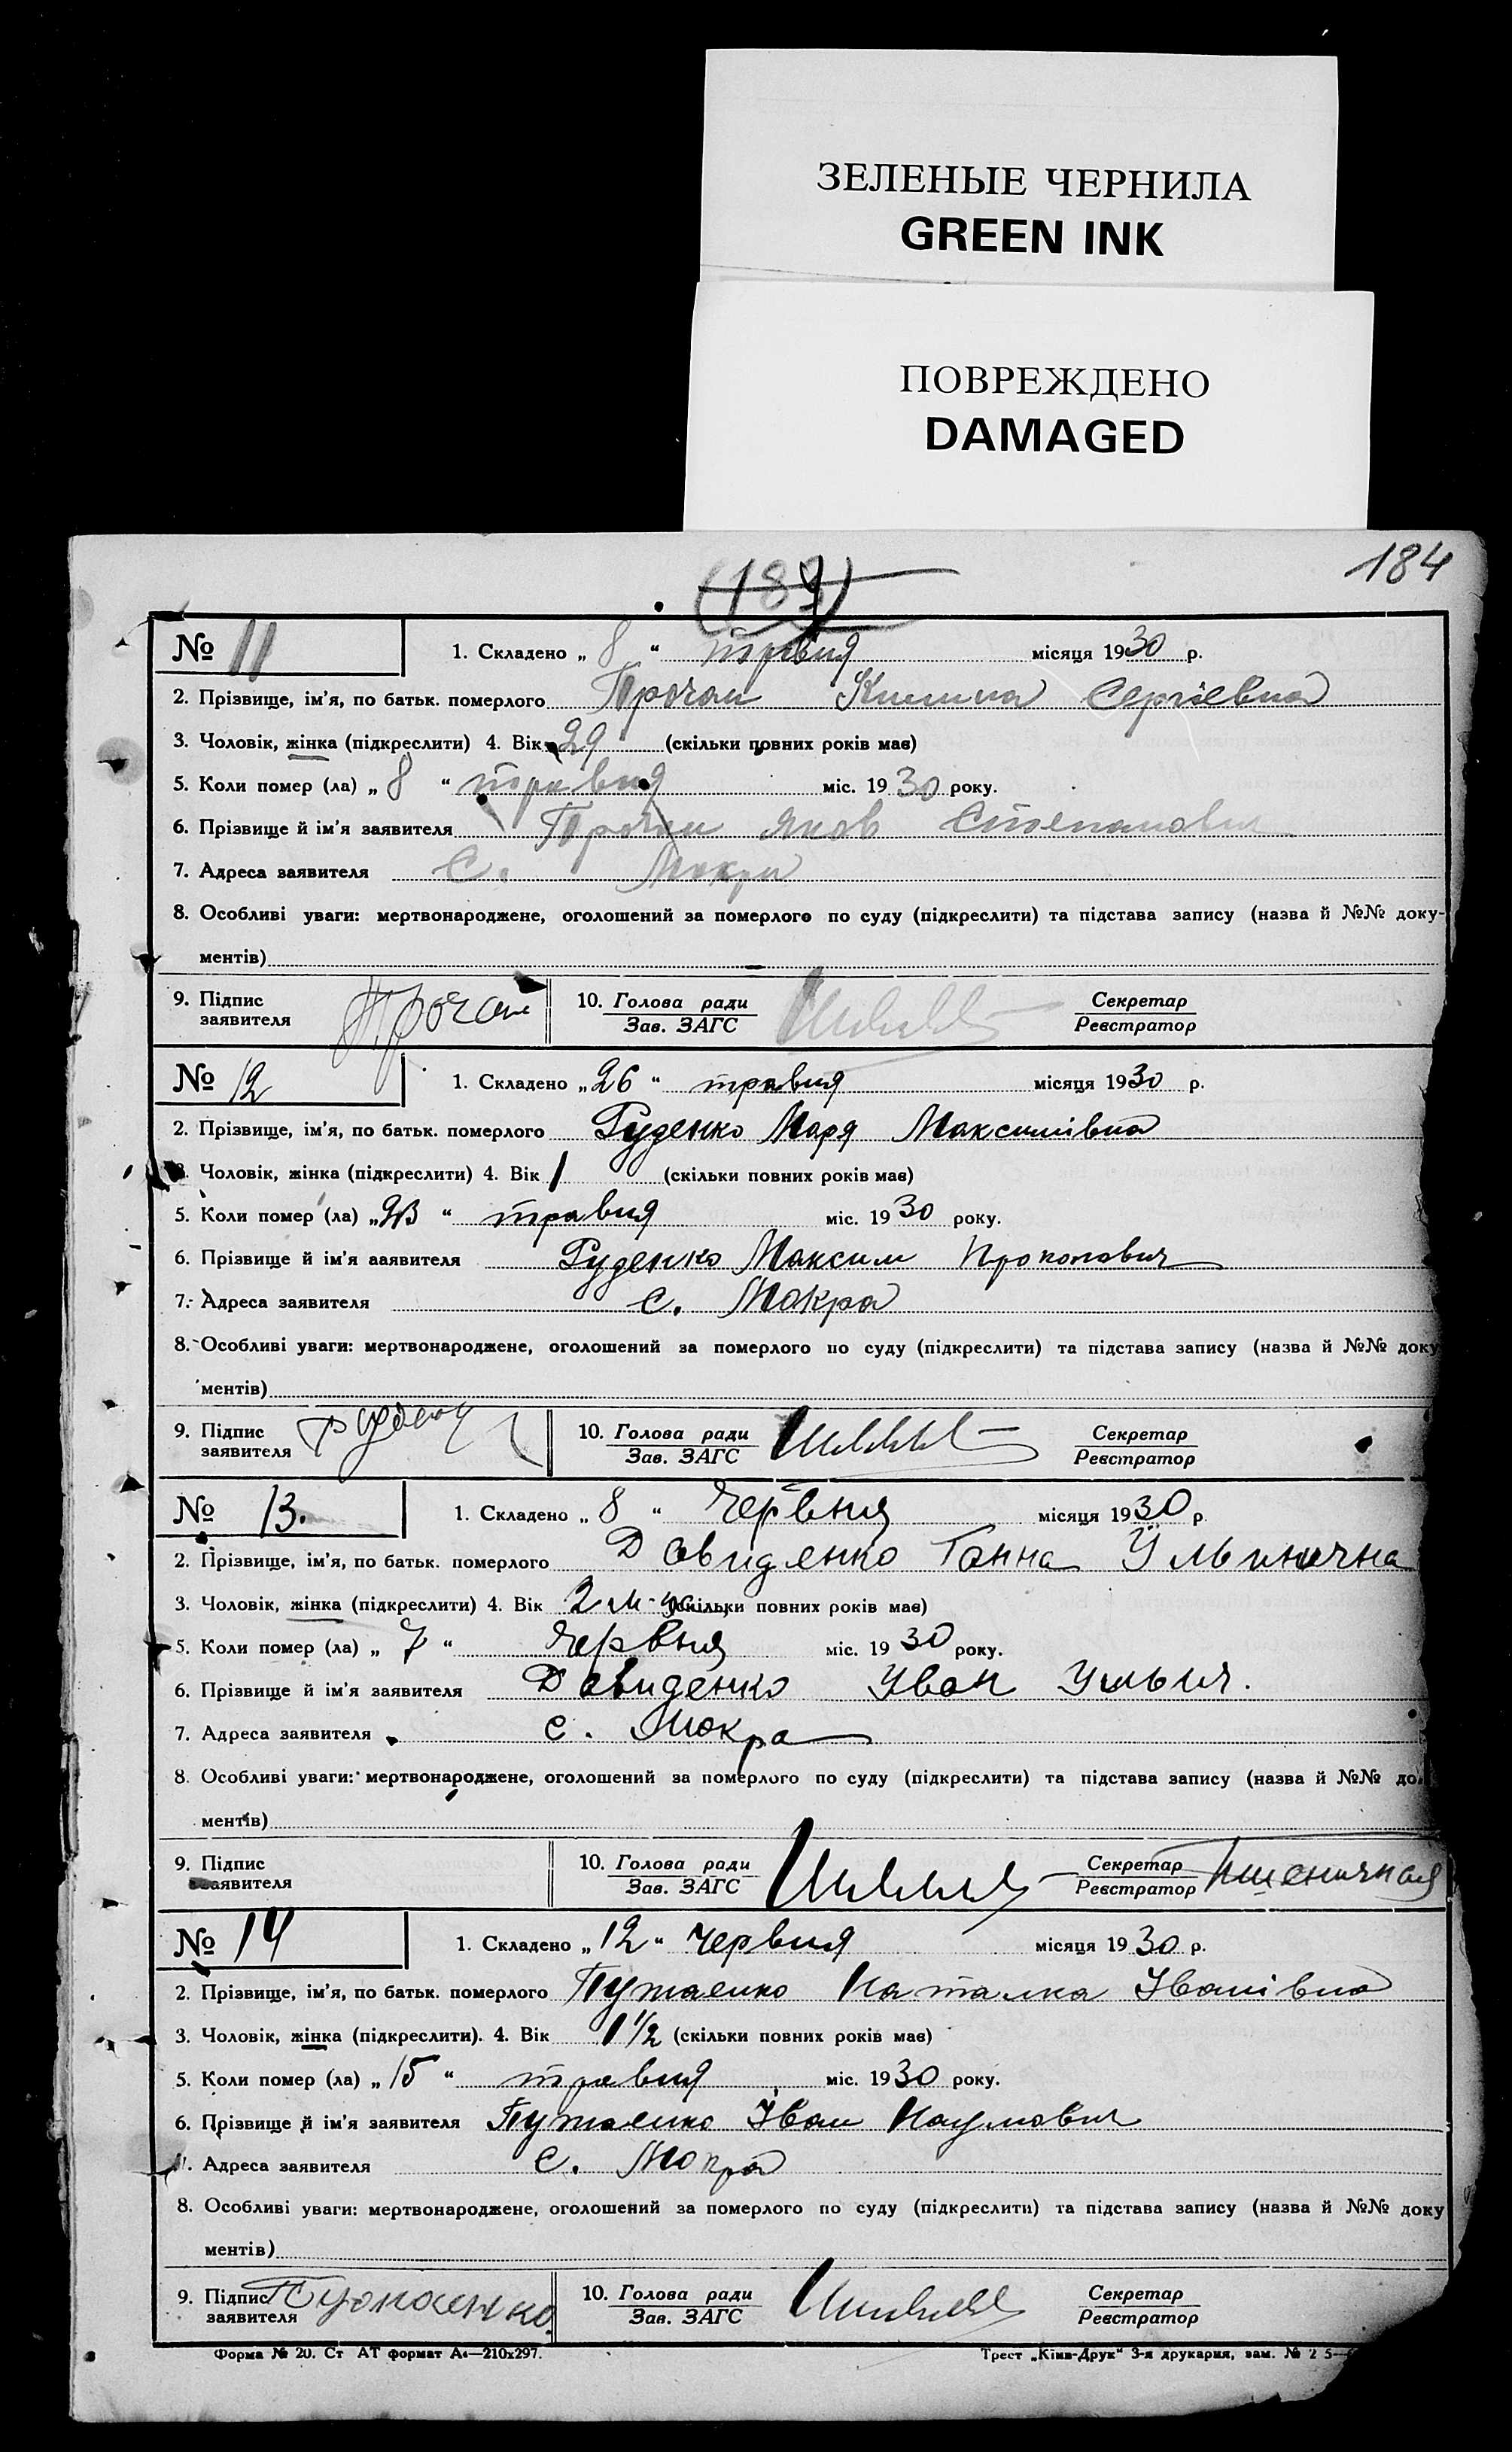 ЗЕЛЕНЫЕ ЧЕРНИЛА
GREEN INK
ПОВРЕЖДЕНО
DAMAGED
184
(183)
№ 11 1. Складено „ 8 “ травня місяця 1930 р.
2. Прізвище, ім'я, по батьк. померлого Трочан Килина Сергіевна
3. Чоловік, жінка (підкреслити) 4. Вік 29 (скільки повних років має)
5. Коли помер (ла) „ 8 “ травня міс. 1930 року.
6. Прізвище й ім'я заявителя Трочан Яков Степанович
7. Адреса заявителя с. Мокра
8. Особливі уваги: мертвонароджене, оголошений за померлого по суду (підкреслити) та підстава запису (назва й №№ доку-
ментів)
9. Підпис заявителя Трочан 10. Голова ради Зав. ЗАГС Секретар Реєстратор
№ 12 1. Складено „ 26 “ травня місяця 1930 р.
2. Прізвище, ім'я, по батьк. померлого Руденко Маря Максимівна
Чоловік, жінка (підкреслити) 4. Вік 1 (скільки повних років має)
5. Коли помер (ла) „ “ травня міс. 1930 року.
6. Прізвище й ім'я заявителя Руденко Максим Прокопович
7. Адреса заявителя с. Мокра
8. Особливі уваги: мертвонароджене, оголошений за померлого по суду (підкреслити) та підстава запису (назва й №№ доку
ментів)
9. Підпис заявителя 10. Голова ради Зав. ЗАГС Секретар Реєстратор
№ 13. 1. Складено „ 8 “ Червня місяця 1930 р
2. Прізвище, ім'я, по батьк. померлого Давиденко Ганна Ульинична
3. Чоловік, жінка (підкреслити) 4. Вік 2 м-ца (скільки повних років має)
5. Коли помер (ла) „ 7 “ Червня міс. 1930 року.
6. Прізвище й ім'я заявителя Давиденко Иван Ильич.
7. Адреса заявителя с. Мокра
8. Особливі уваги: мертвонароджене, оголошений за померлого по суду (підкреслити) та підстава запису (назва й №№ до
ментів)
9. Підпис заявителя 10. Голова ради Зав. ЗАГС Секретар Реєстратор Пшеничная
№ 14 1. Складено „ 12 “ Червня місяця 1930 р.
2. Прізвище, ім'я, по батьк. померлого Наталка Іванівна
3. Чоловік, жінка (підкреслити). 4. Вік 1 1/2 (скільки повних років має)
5. Коли помер (ла) „ 15 “ травня міс. 1930 року.
6. Прізвище й ім'я заявителя Іван Наумович
Адреса заявителя с. Мокра
8. Особливі уваги: мертвонароджене, оголошений за померлого по суду (підкреслити) та підстава запису (назва й №№ доку
ментів)
9. Підпис заявителя 10. Голова ради Зав. ЗАГС Секретар Реєстратор
Форма № 20. Ст АТ формат А4—210x297. Трест „Київ-Друк“ 3-я друкарня, зам. № 2 5—